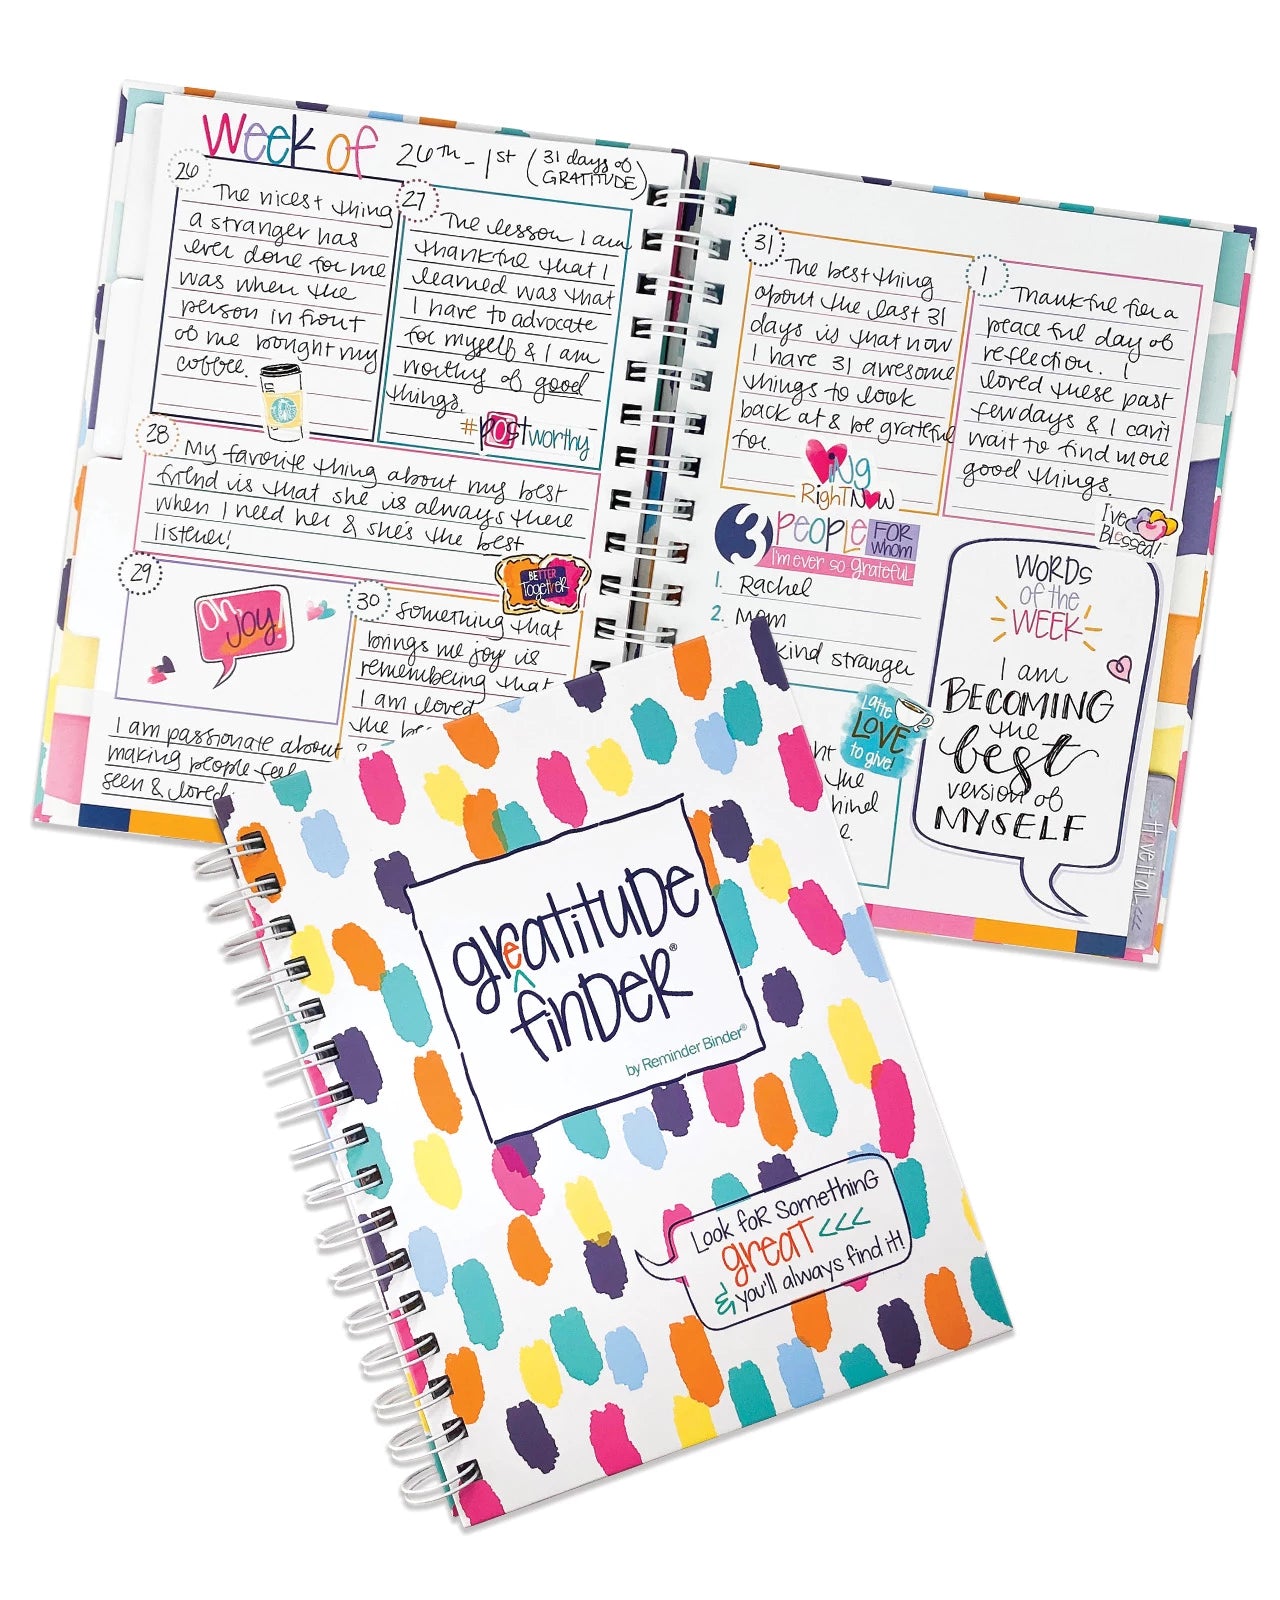 Week of 26TH - 1ST (31 days of GRATITUDE)
26
The nicest thing
a stranger has
ever done for me
was when the
person in front
of me bought my
coffee.
27
The lesson I am
thankful that I
learned was that
I have to advocate
for myself & I am
worthy of good
things.
#postworthy
28
My favorite thing about my best
friend is that she is always there
when I need her & she's the best
listener!
BETTER
Together
29
OH
JOY!
I am passionate about
making people feel
seen & loved
30
Something that
brings me joy is
remembering that
I am loved
the
31
The best thing
about the last 31
days is that now
I have 31 awesome
things to look
back at & be grateful
for.
ing
RIGHT NOW
1
Thankful for a
peaceful day of
reflection. I
loved these past
few days & I can't
wait to find more
good things.
I've
Blessed!
3 PEOPLE FOR whom
I'm ever so grateful
1. Rachel
2. Mom
kind stranger
Latte
LOVE
to give!
the
WORDS
of the
WEEK
I am
BECOMING
the
best
version of
MYSELF
gratitude
e
^
finder®
by Reminder Binder®
Look for something
great <<<
& you'll always find it!